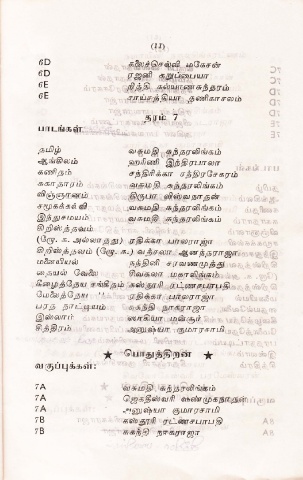 (11)
6D கலைச்செல்வி மகேசன்
6D ரஜனி குறுப்பையா
6E நித்தி கல்யாணசுந்தரம்
6E சாய்சத்தியா தணிகாசலம்
தரம் 7
பாடங்கள்
தமிழ் வசுமதி சுந்தரலிங்கம்
ஆங்கிலம் ஹரிணி இந்திரபாலா
கணிதம் சந்திரிக்கா சந்திரசேகரம்
சுகாதாரம் வசுமதி சுந்தரலிங்கம்
விஞ்ஞானம் நிரூபா விஸ்வநாதன்
சமூகக்கல்வி வசுமதி சுந்தரலிங்கம்
இந்துசமயம் வசுமதி சுந்தரலிங்கம்
கிறிஸ்தவம்
(ரோ. க. அல்லாதது) ரதிக்கா பாலராஜா
கிறிஸ்தவம் (ரோ. க.) வத்சலா ஆனந்தராஜா
மனையியல் சுந்தினி சரவணமுத்து
தையல் வேலை சிவகலா மகாலிங்கம்
கீழைத்தேய சங்கீதம் கஸ்தூரி ரட்ணசபாபதி
மேலைத்தேய " ரதிக்கா பாலராஜா
பரத நாட்டியம் சுகந்தி நாகராஜா
இஸ்லாம் ஸாகியா மன்சூர்
சித்திரம் அனுஷ்யா குமாரசாமி
★ பொதுத்திறன் ★
வகுப்புக்கள்:
7A வசுமதி சுந்தரலிங்கம்
7A ஜெகதீஸ்வரி சண்முகநாதன்
7A அனுஷ்யா குமாரசாமி
7B கஸ்தூரி ரட்ணசபாபதி
7B சுகந்தி நாகராஜா